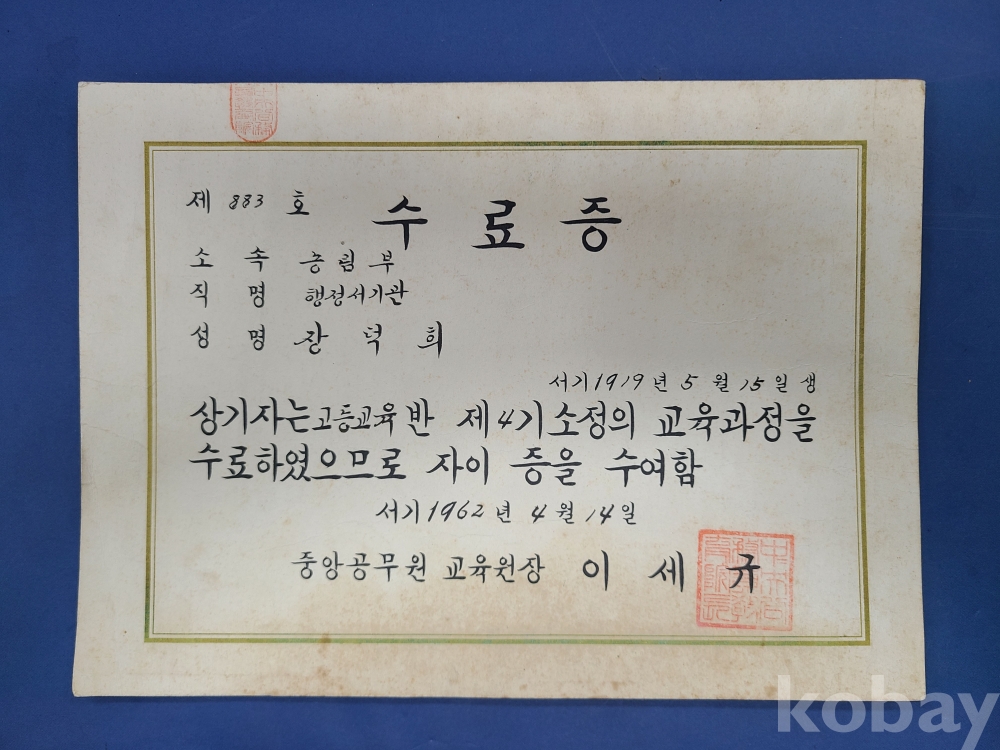 제 883 호
수료증
소 속 농림부
직 명 행정서기관
성 명 장 덕 희
서기 1919년 5월 15일 생
상기자는 고등교육반 제4기소정의 교육과정을
수료하였으므로 자이 증을 수여함
서기 1962년 4월 14일
중앙공무원 교육원장 이 세 규
kobay